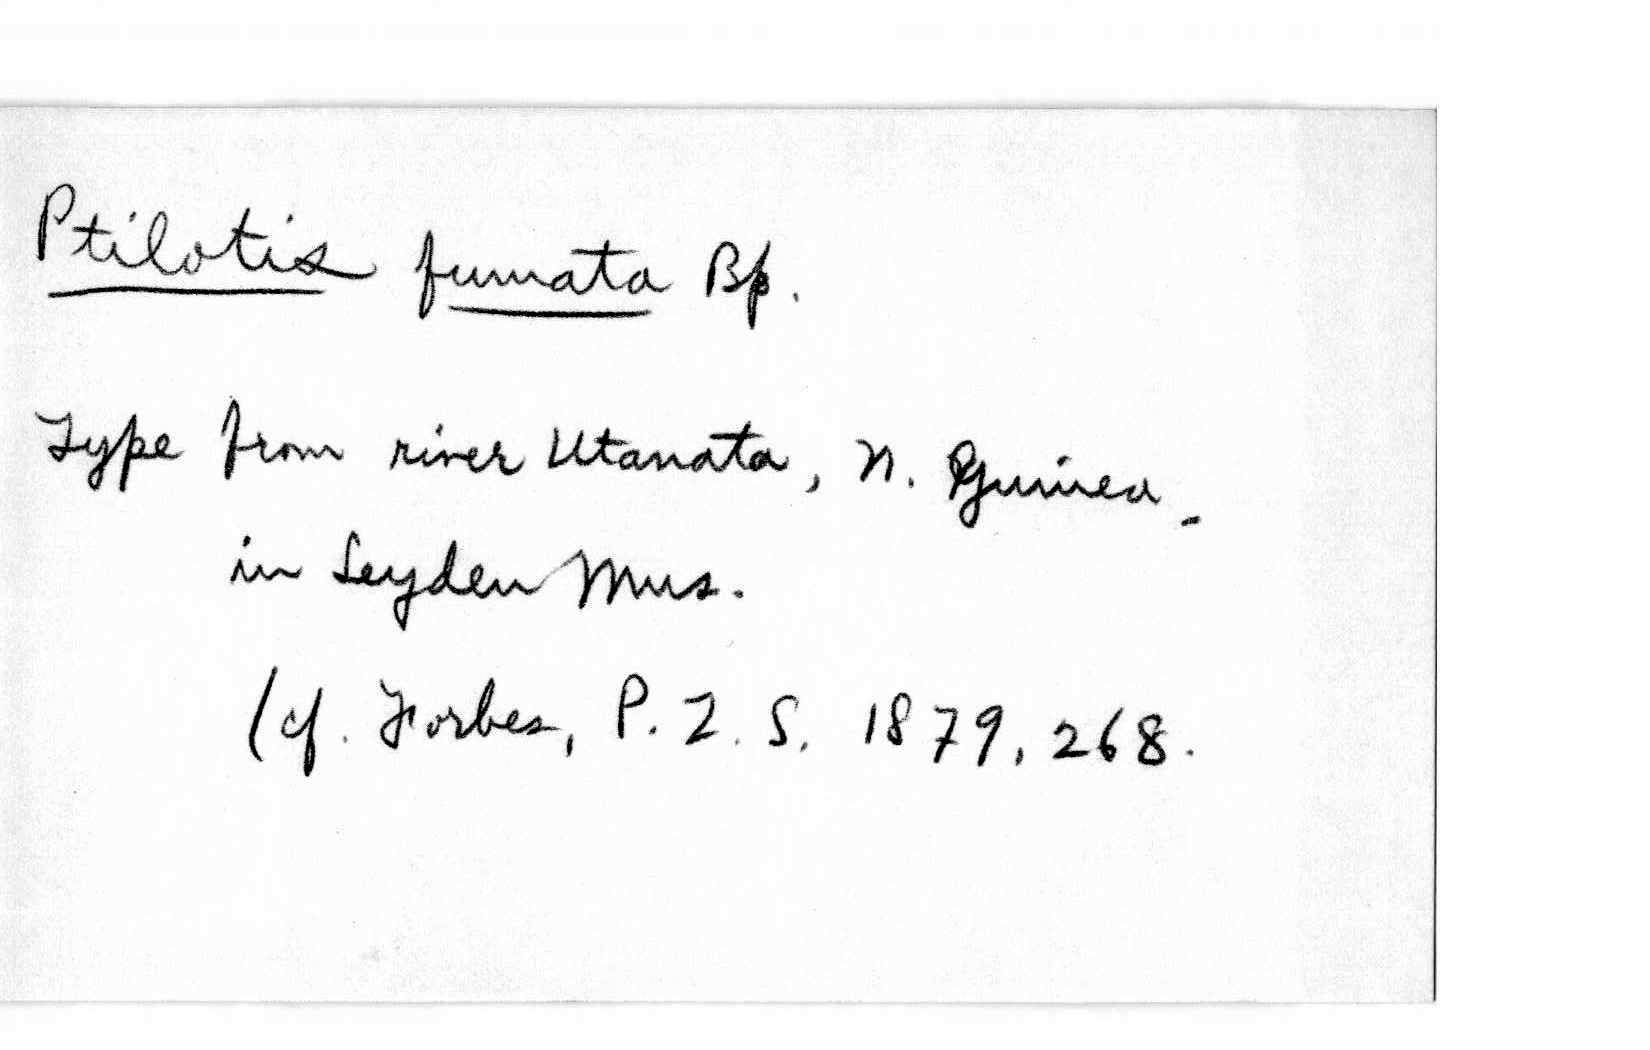 Ptilotis fumata Bp.
Type from river Utanata, N. Guinea.
in Leyden Mus.
(cf. Forbes, P. Z. S. 1879, 268.